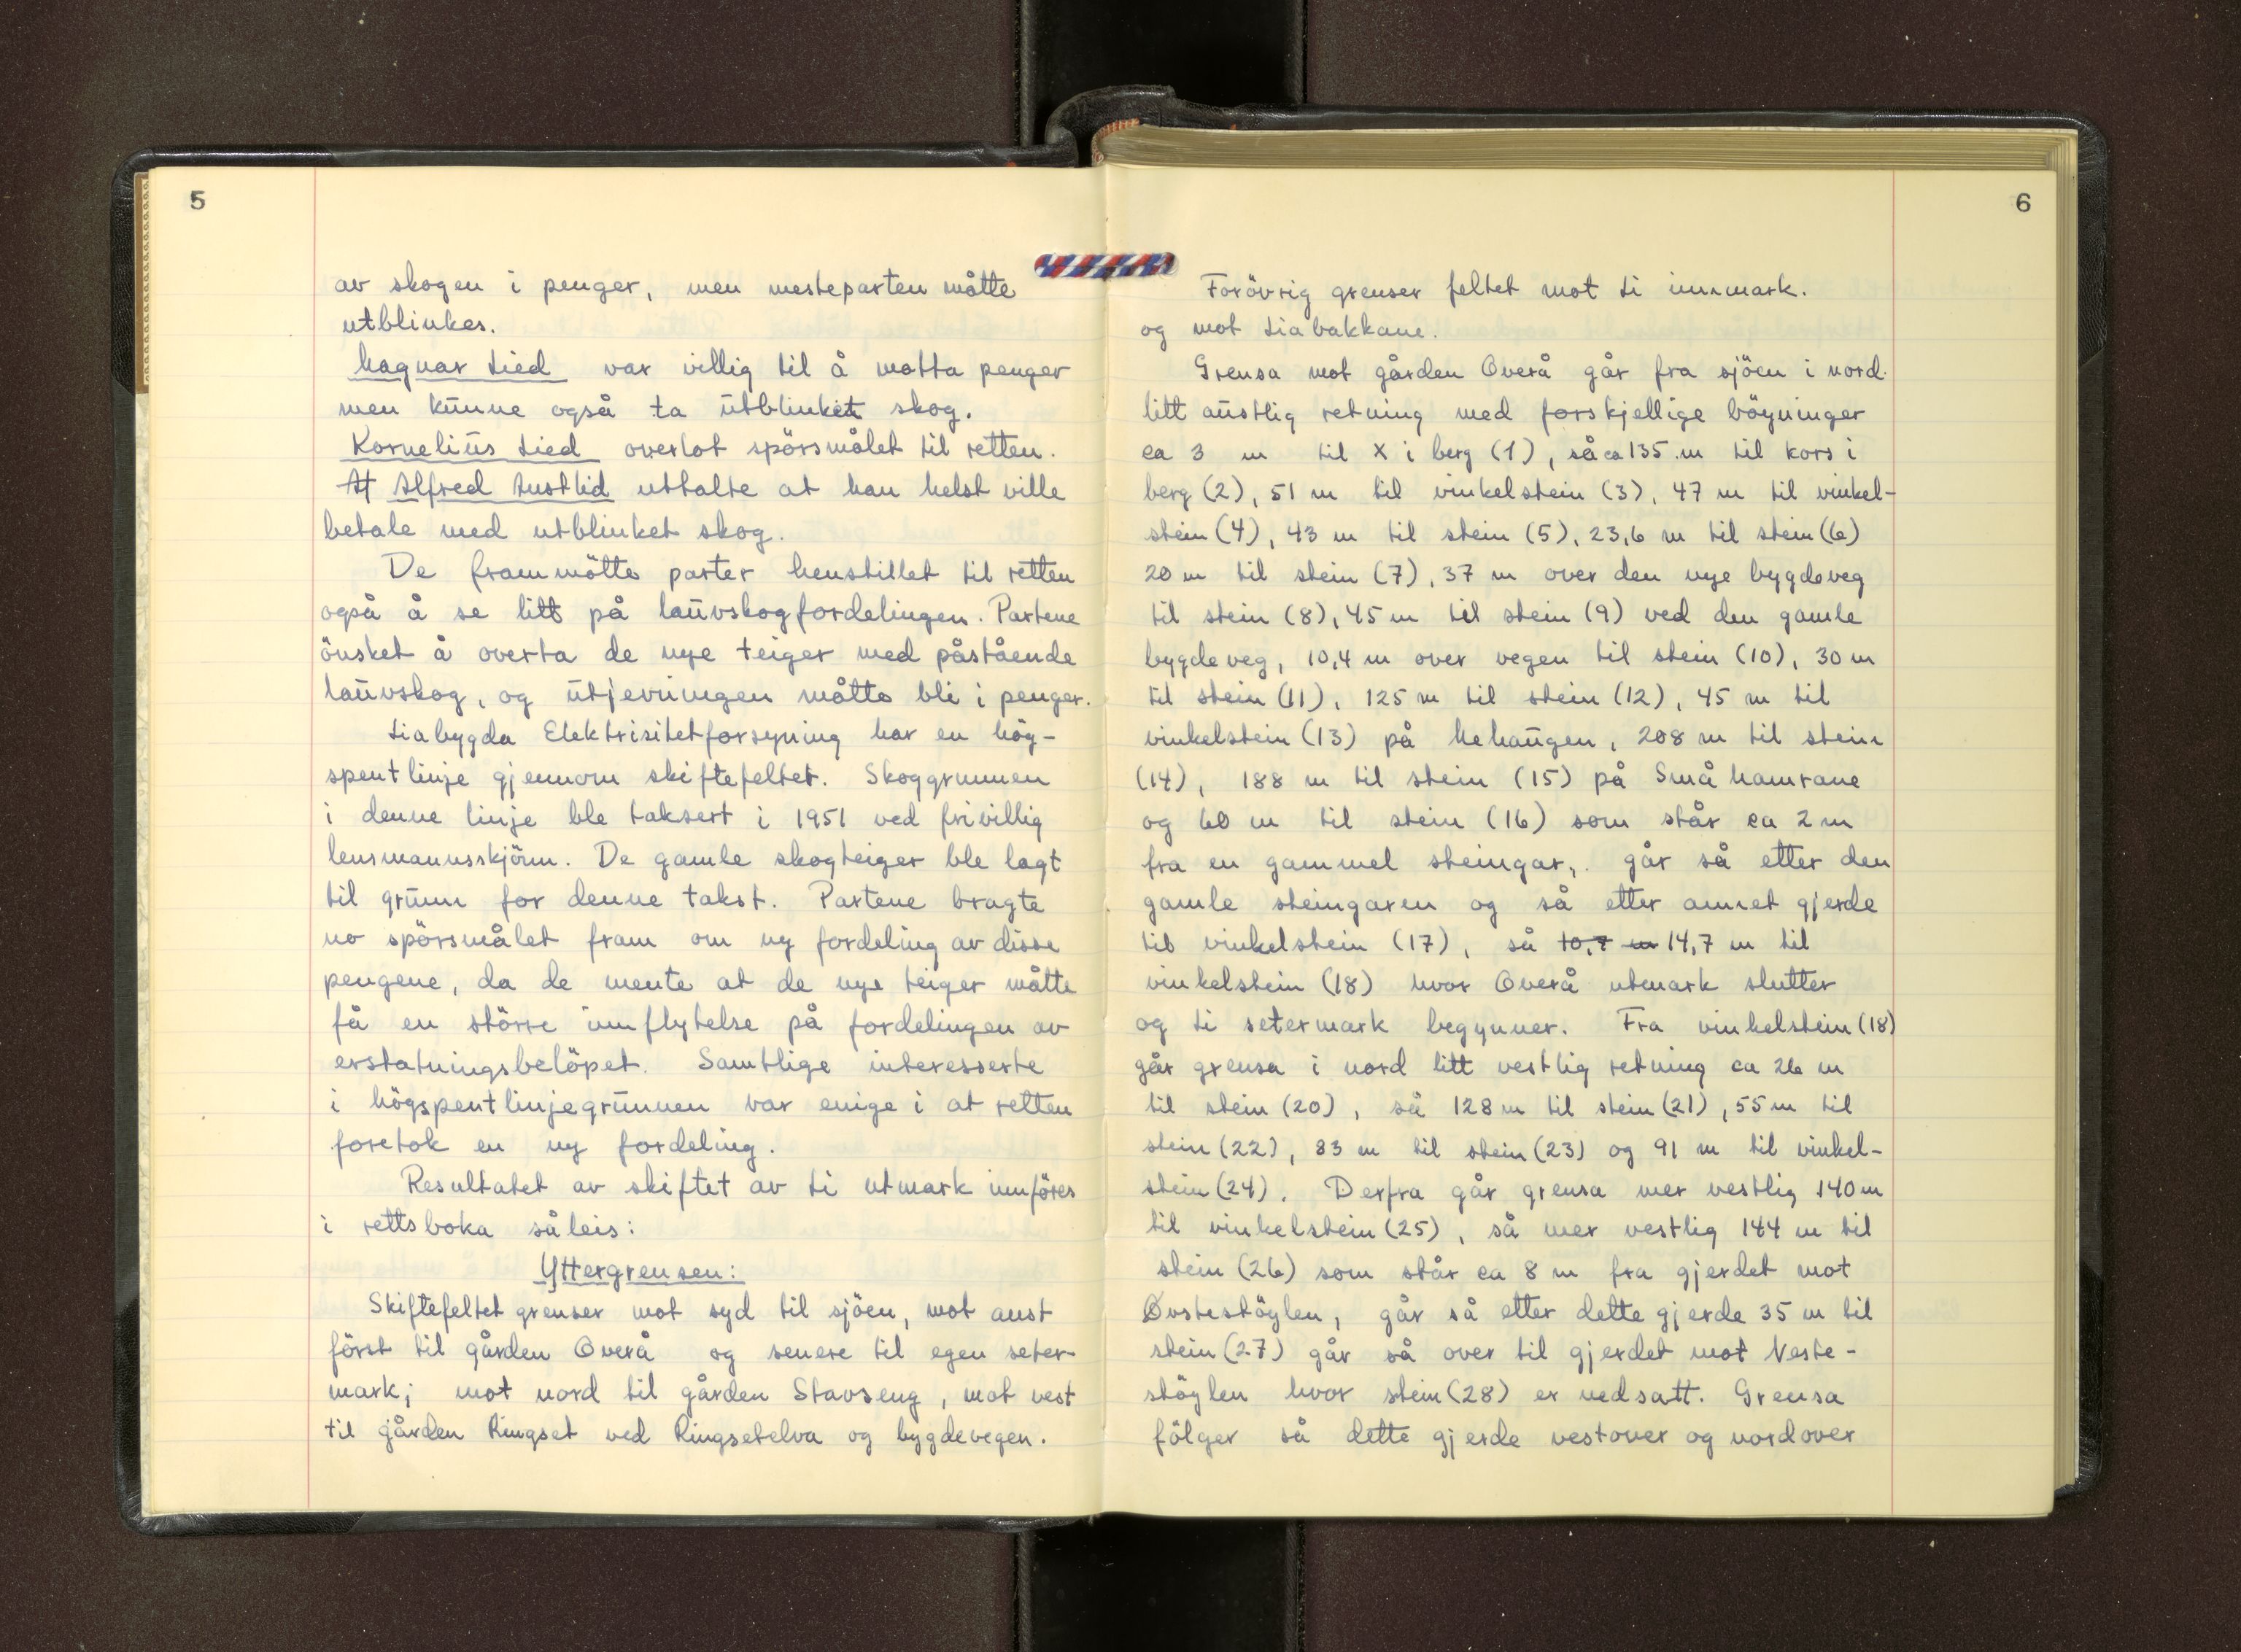 5
av skogen i penger, men mesteparten måtte
utblinkes.
Magnar Lied var villig til å motta penger
men kunne også ta utblinket skog.
Kornelius Lied overlot spörsmålet til retten.
Af Alfred Austlid uttalte at han helst ville
betale med utblinket skog.
De frammötte parter henstillet til retten
også å se litt på lauvskogfordelingen. Partene
önsket å overta de nye teiger med påstående
lauvskog, og utjevningen måtte bli i penger.
Liabygda Elektrisitetforsyning har en hög-
spentlinje gjennom skiftefeltet. Skoggrunnen
i denne linje ble taksert i 1951 ved frivillig
lensmannsskjönn. De gamle skogteiger ble lagt
til grunn for denne takst. Partene bragte
no spörsmålet fram om ny fordeling av disse
pengene, da de mente at de nye teiger måtte
få en större innflytelse på fordelingen av
erstatningsbelöpet. Samtlige interesserte
i högspentlinjegrunnen var enige i at retten
foretok en ny fordeling.
Resultatet av skiftet av Li utmark innföres
i rettsboka såleis:
Yttergrensen:
Skiftefeltet grenser mot syd til sjöen, mot aust
först til gården Overå og senere til egen seter-
mark; mot nord til gården Stavseng, mot vest
til gården Ringset ved Ringsetelva og bygdevegen.
6
Forövrig grenser feltet mot Li innmark.
og mot Liabakkane.
Grensa mot gården Overå går fra sjöen i nord
litt austlig retning med forskjellige böyninger
ca 3 m til X i berg (1), så ca 135 m til kors i
berg (2), 51 m til vinkelstein (3), 47 m til vinkel-
stein (4), 43 m til stein (5), 23,6 m til stein (6)
20 m til stein (7), 37 m over den nye bygdeveg
til stein (8), 45 m til stein (9) ved den gamle
bygdeveg, 10,4 m over vegen til stein (10), 30 m
til stein (11), 125 m til stein (12), 45 m til
vinkelstein (13) på Mehaugen, 208 m til stein
(14), 188 m til stein (15) på Småhamrane
og 60 m til stein (16) som står ca 2 m
fra en gammel steingar, går så etter den
gamle steingaren og så etter annet gjerde
til vinkelstein (17), så 10,7 m 14,7 m til
vinkelstein (18) hvor Overå utmark slutter
og Li setermark begynner. Fra vinkelstein (18)
går grensa i nord litt vestlig retning ca 26 m
til stein (20), så 128 m til stein (21), 55 m til
stein (22), 83 m til stein (23) og 91 m til vinkel-
stein (24). Derfra går grensa mer vestlig 140 m
til vinkelstein (25), så mer vestlig 144 m til
stein (26) som står ca 8 m fra gjerdet mot
Øvstestöylen, går så etter dette gjerde 35 m til
stein (27) går så over til gjerdet mot Veste-
stöylen hvor stein (28) er nedsatt. Grensa
fölger så dette gjerde vestover og nordover